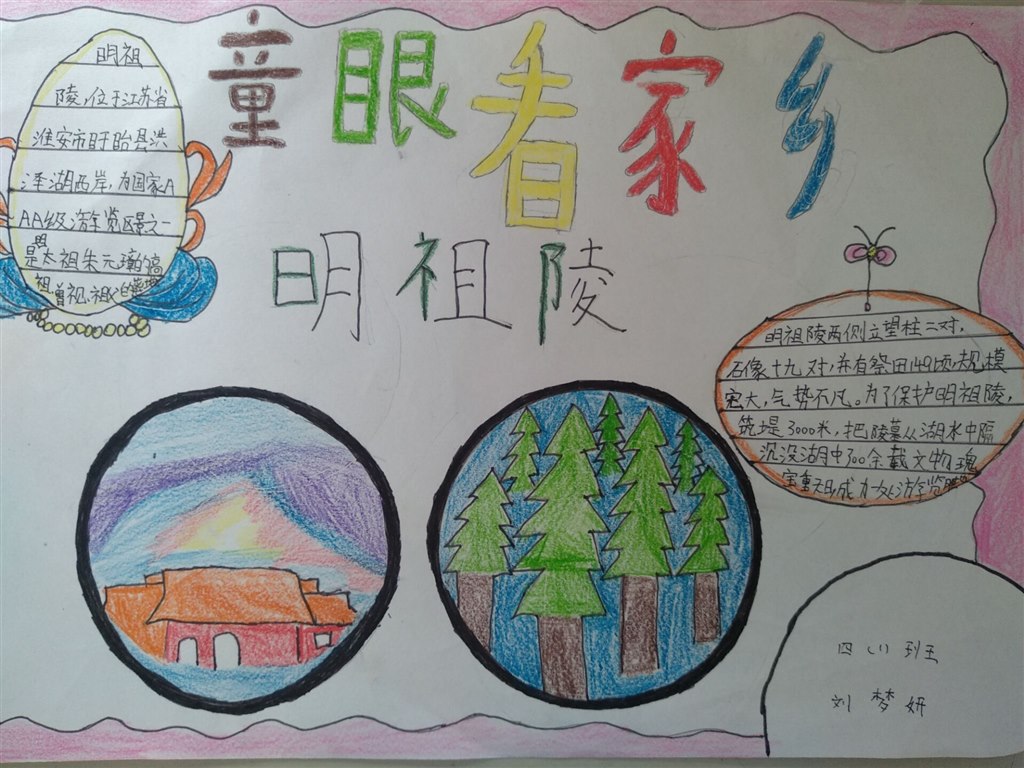 童眼看家乡
明祖陵
明祖
陵,位于江苏省
淮安市盱眙县洪
泽湖西岸,为国家A
AA级游览区景之一
是太祖朱元璋的高
祖,曾祖、祖父的
明祖陵两侧立望柱二对,
石像十九对,并有祭田149顷,规模
宏大,气势不凡。为了保护明祖陵,
筑堤3000米,把陵墓从湖水中隔
沉没湖中300余载文物瑰
宝重
四(1)班
刘梦妍